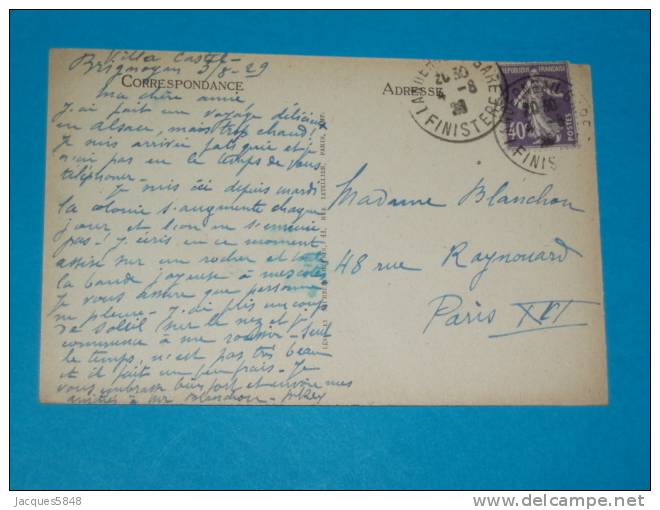 Villa Castel-
Brignogan 3/8-29
CORRESPONDANCE
ADRESSE
Ma chère amie
J'ai fait un voyage délicieux
en Alsace, mais trop chaud!
Je suis arrivée fatiguée et je
n'ai pas eu le temps de vous
téléphoner -
Je suis ici depuis mardi
la colonie s'augmente chaque
jour et l'on ne s'ennuie
pas! J'écris en ce moment
assise sur un rocher et toute
la bande joyeuse à mes côtés
Je vous assure que personne
ne pleure - J'ai pris un coup
de soleil sur le nez et je
commence à me roussir - Seul
le temps, n'est pas très beau
et il fait un peu frais - Je
vous embrasse bien fort et envoie mes
amitiés à Mr Blanchon -
Madame Blanchon
48 rue Raynouard
Paris XVI
GARE
20 30
4 -8
FINISTERE
REPUBLIQUE FRANÇAISE
40c
POSTES
FINIS
Jacques5848
delcampe.net